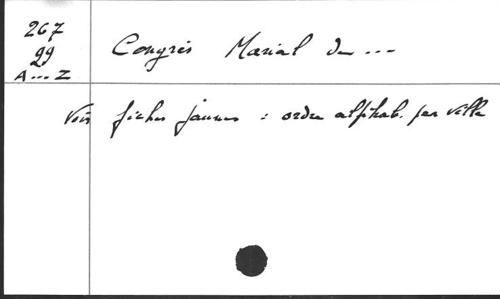 267
29
A...Z
Congrès Marial du ...
Voir fiches jaunes : ordre alphab. par ville